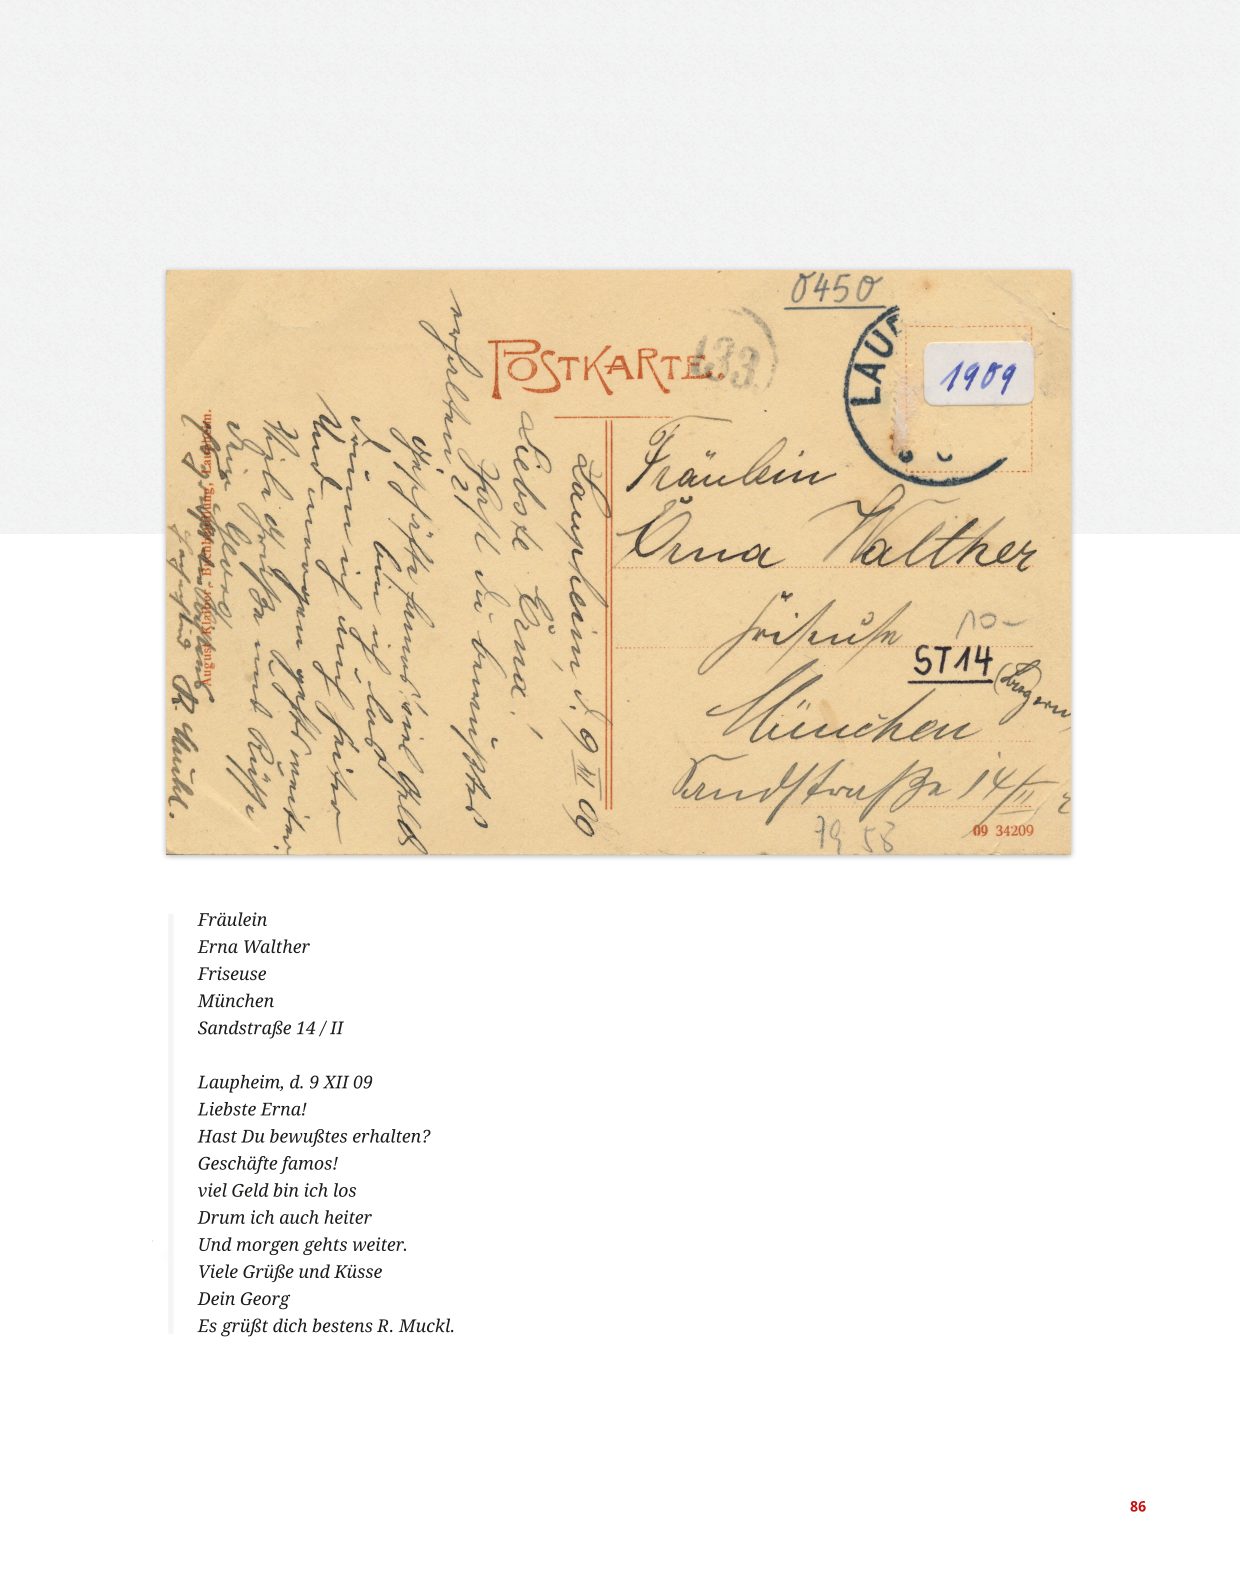 0450
POSTKARTE.
133
LAUP
1909
Fräulein
Erna Walther
Friseuse
10-
ST14
München
(Bayern)
Sandstraße 14/II
79 58
09 34209
Laupheim, d. 9 XII 09
Liebste Erna!
Hast Du bewußtes
erhalten?
Geschäfte famos! viel Geld
bin ich los
Drum ich auch heiter
Und morgen gehts weiter.
Viele Grüße und Küsse
Dein Georg
Es grüßt dich bestens
R. Muckl.
August Klaiber, Buchhandlung, Laupheim.
Fräulein
Erna Walther
Friseuse
München
Sandstraße 14 / II
Laupheim, d. 9 XII 09
Liebste Erna!
Hast Du bewußtes erhalten?
Geschäfte famos!
viel Geld bin ich los
Drum ich auch heiter
Und morgen gehts weiter.
Viele Grüße und Küsse
Dein Georg
Es grüßt dich bestens R. Muckl.
86